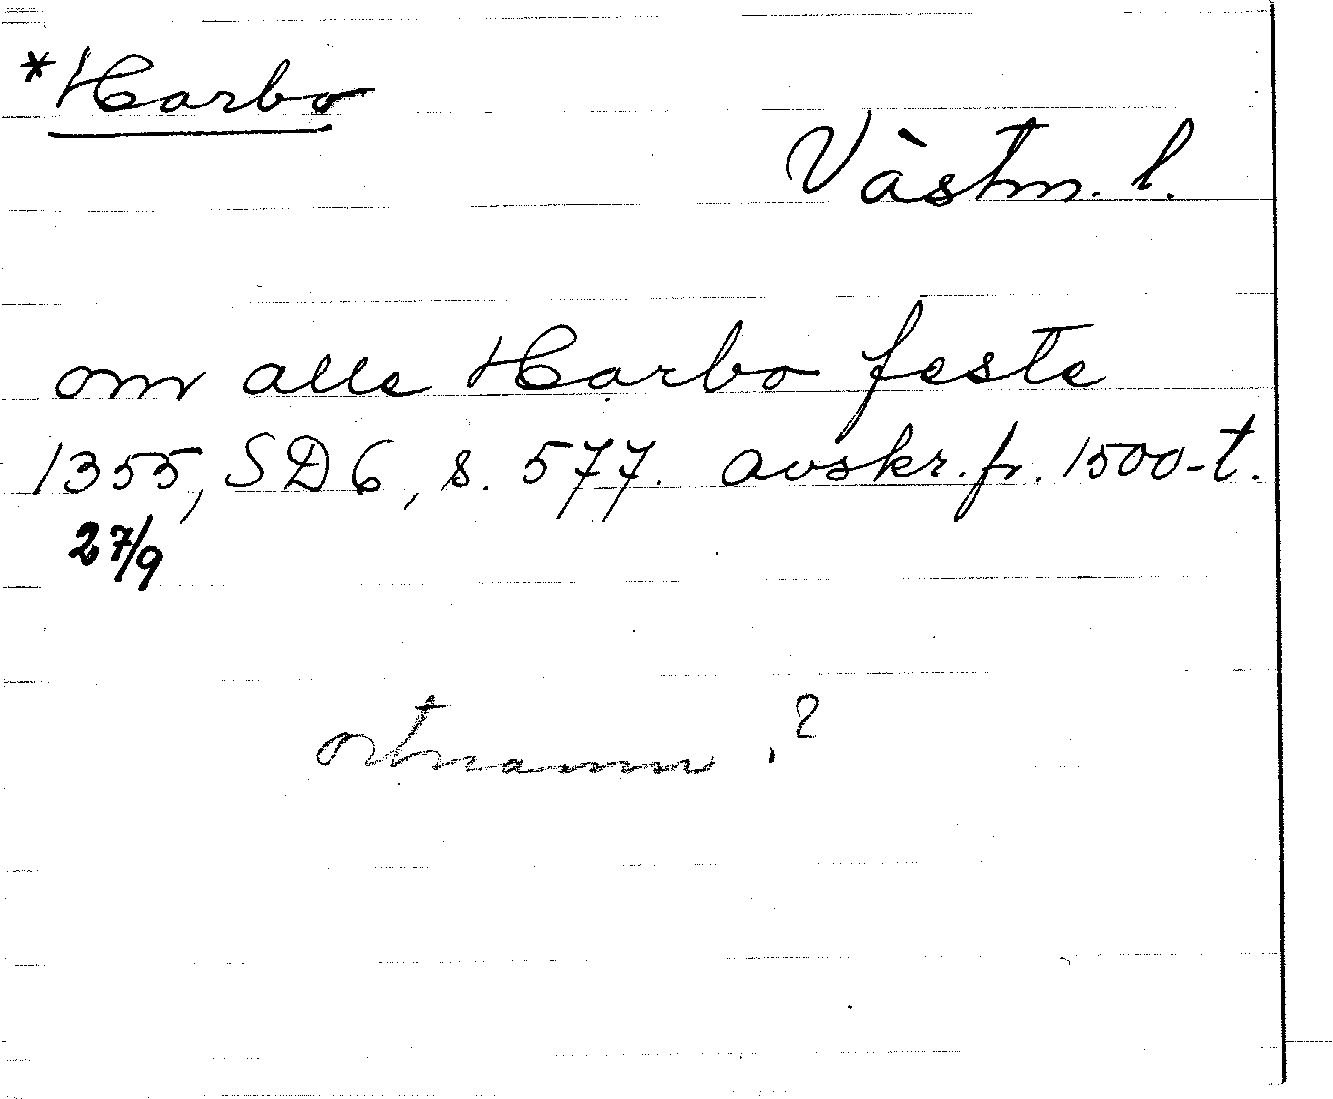 *Harbo
Västm. l.
om alle Harbo feste
1355, SD 6, s. 577. avskr. fr. 1500-t.
27/9
ortnamn ?